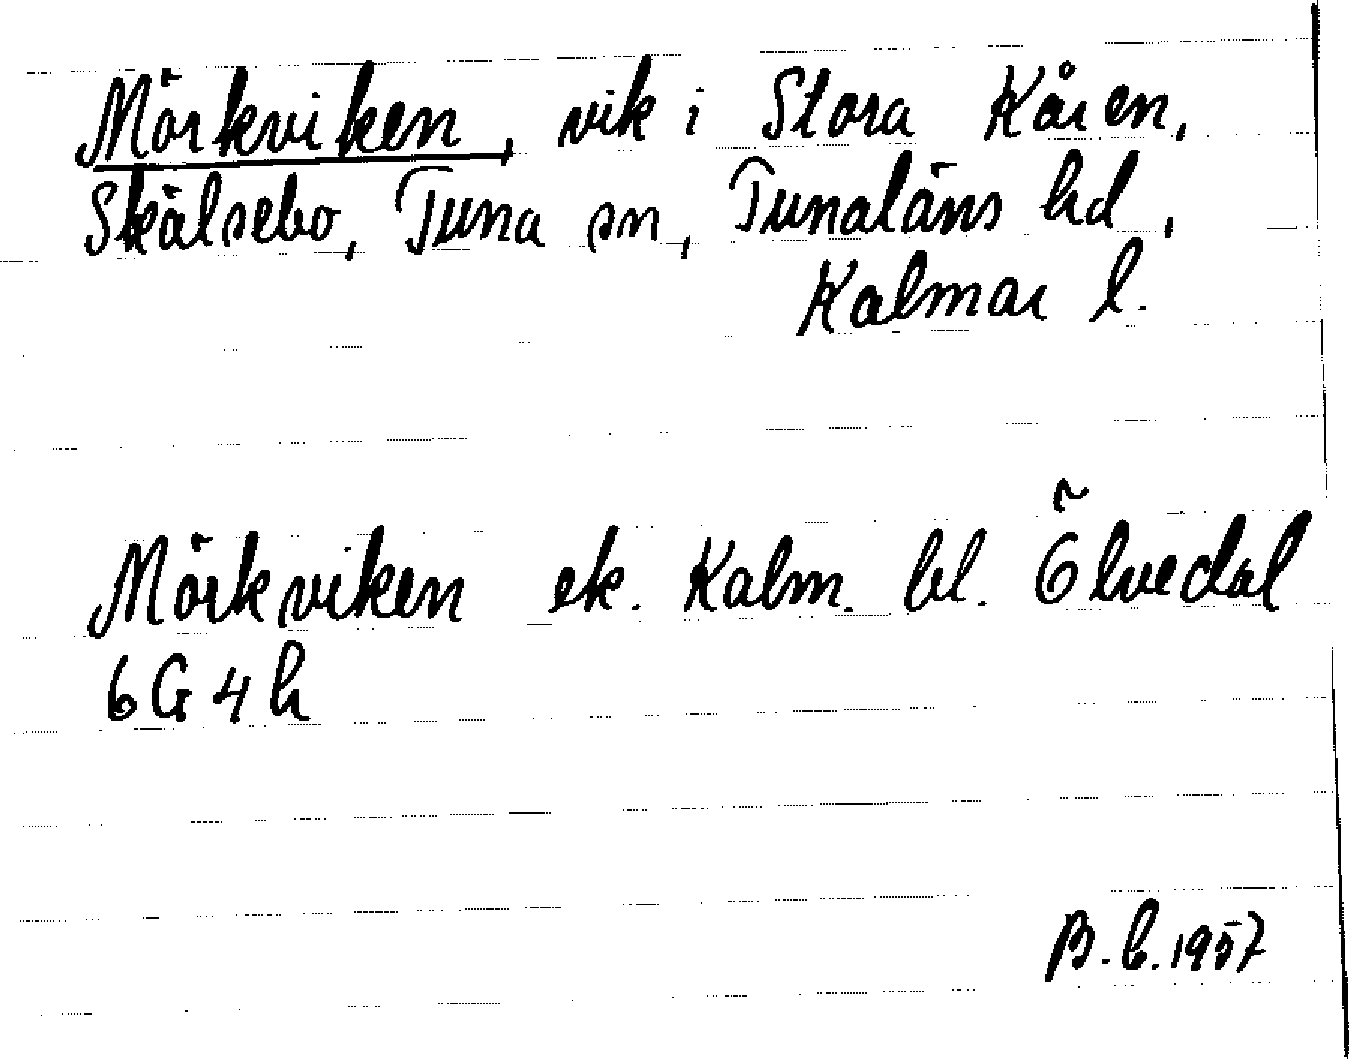 Mörkviken, vik i Stora Kåren,
Skälsebo, Tuna sn, Tunaläns hd,
Kalmar l.
Mörkviken ek. Kalm. bl. Ölvedal
6G4h
B.b.1957